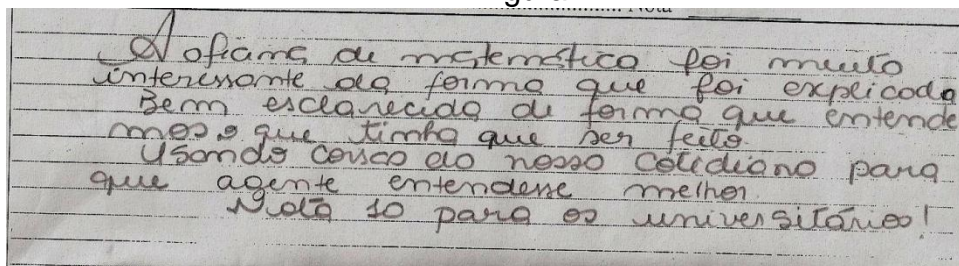 Nota
A ofiama de matemática foi muito
interessante da forma que foi explicada
Bem esclarecida de forma que entende
mos o que tinha que ser feito.
Usando coisa do nosso cotidiano para
que agente entendesse melhor
Nota 10 para os universitários!